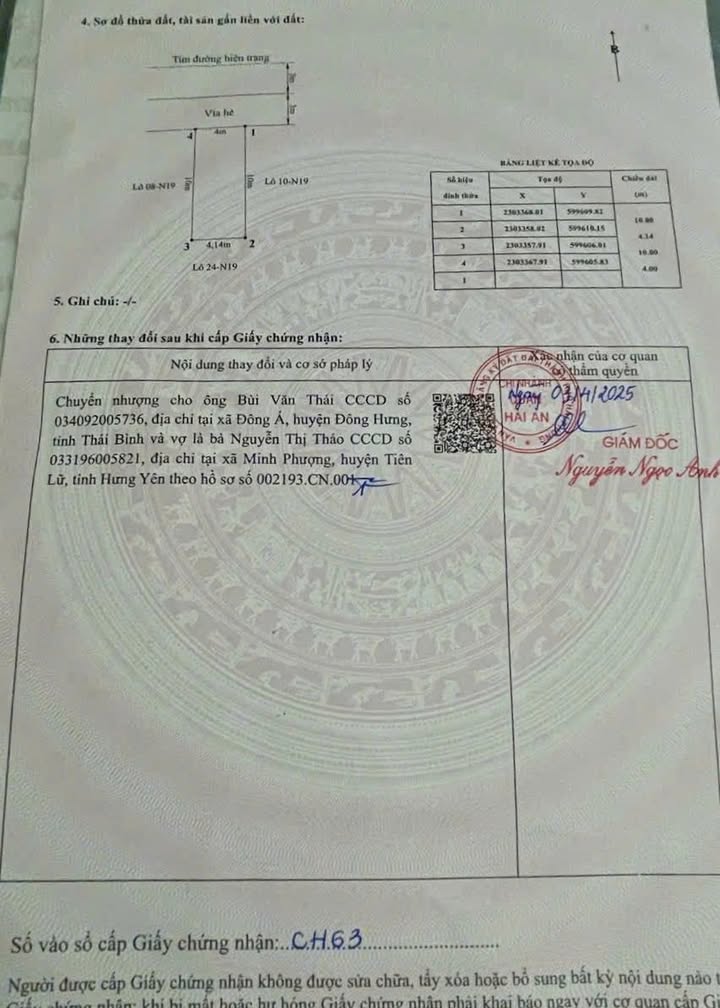 4. Sơ đồ thửa đất, tài sản gắn liền với đất:
B
Tim đường hiện trạng
Vỉa hè
4 4m 1
Lô 08-N19 10m 10m Lô 10-N19
3 4,14m 2
Lô 24-N19
BẢNG LIỆT KÊ TỌA ĐỘ
Số hiệu đỉnh thửa Tọa độ Chiều dài (m)
X Y
1 2303368.01 599609.82
10.00
2 2303358.02 599610.15
4.14
3 2303357.91 599606.01
10.00
4 2303367.91 599605.83
4.00
1
5. Ghi chú: -/-
6. Những thay đổi sau khi cấp Giấy chứng nhận:
Nội dung thay đổi và cơ sở pháp lý
Xác nhận của cơ quan
thẩm quyền
Chuyển nhượng cho ông Bùi Văn Thái CCCD số
034092005736, địa chỉ tại xã Đông Á, huyện Đông Hưng,
tỉnh Thái Bình và vợ là bà Nguyễn Thị Thảo CCCD số
033196005821, địa chỉ tại xã Minh Phượng, huyện Tiên
Lữ, tỉnh Hưng Yên theo hồ sơ số 002193.CN.001
CHI NHÁNH
QUẬN
HẢI AN
Ngày 03/4/2025
GIÁM ĐỐC
Nguyễn Ngọc Anh
Số vào sổ cấp Giấy chứng nhận:..CH63
Người được cấp Giấy chứng nhận không được sửa chữa, tẩy xóa hoặc bổ sung bất kỳ nội dung nào
Giấy chứng nhận; khi bị mất hoặc hư hỏng Giấy chứng nhận phải khai báo ngay với cơ quan cấp